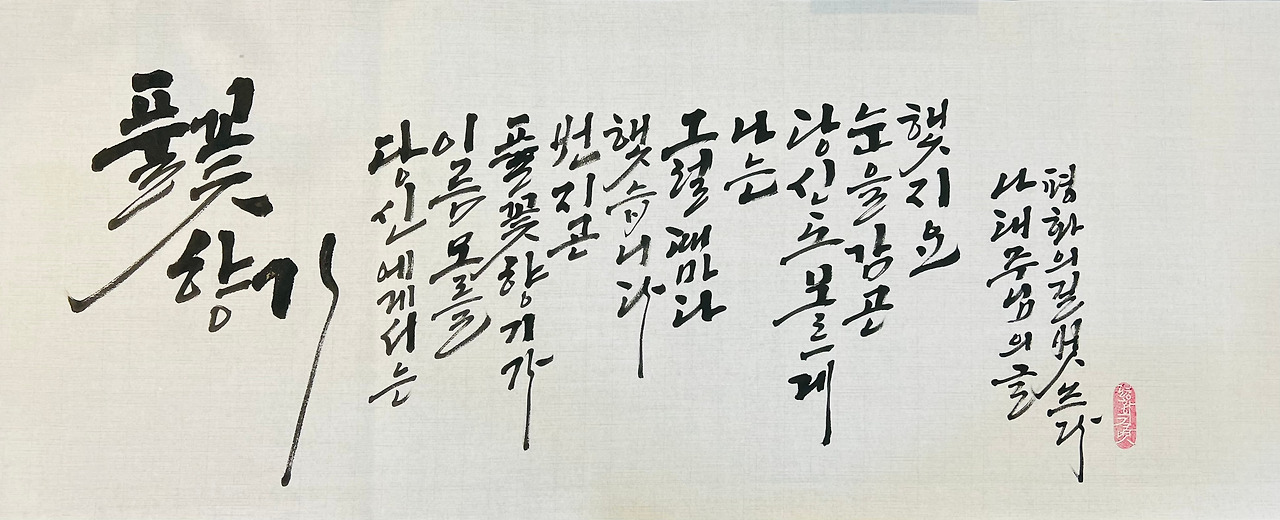 풀꽃
향기
당신에게서는
이름 모를
풀꽃 향기가
번지곤
했습니다
그럴 때마다
나는
당신도 모르게
눈을 감곤
했지요
나태주님의 글
평화의길벗 쓰다